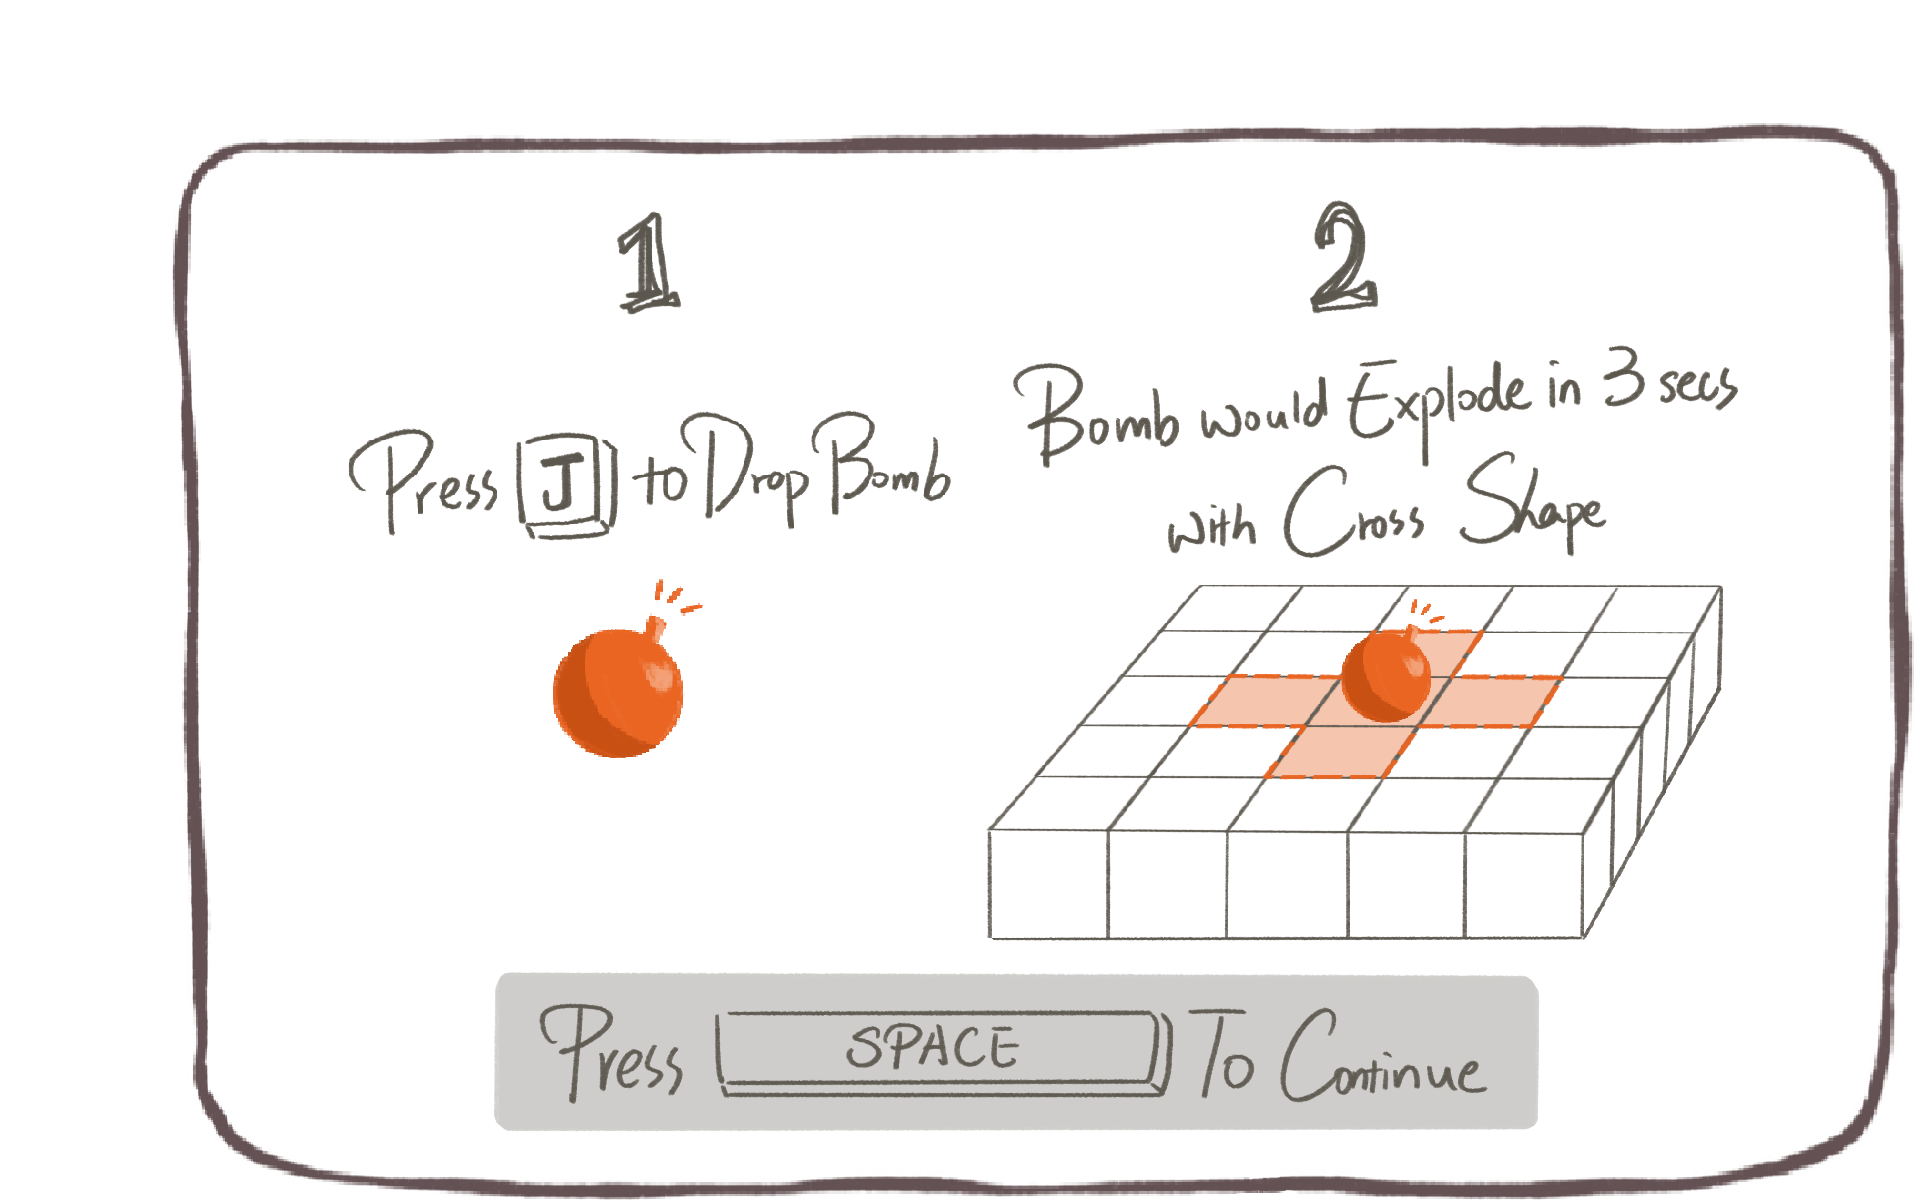 1
Press J to Drop Bomb
2
Bomb would Explode in 3 secs
with Cross Shape
Press SPACE To Continue